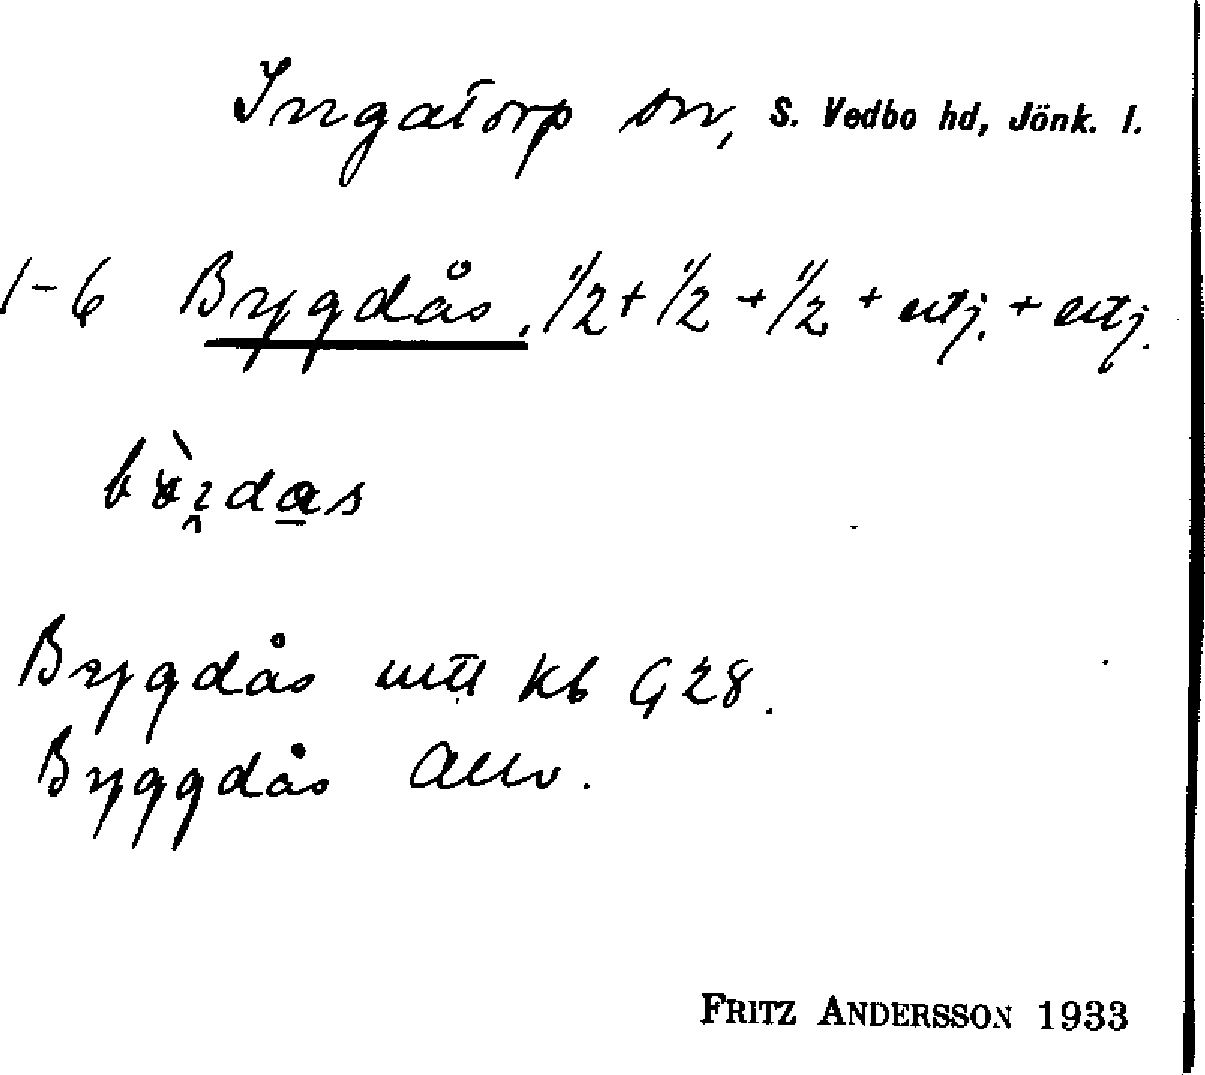 Ingatorp sn, S. Vedbo hd, Jönk. l.
1-6 Bygdås, 1/2 + 1/2 + 1/2 + utj. + utj.
Bygdås utt kb G28.
Byggdås Allm.
FRITZ ANDERSSON 1933